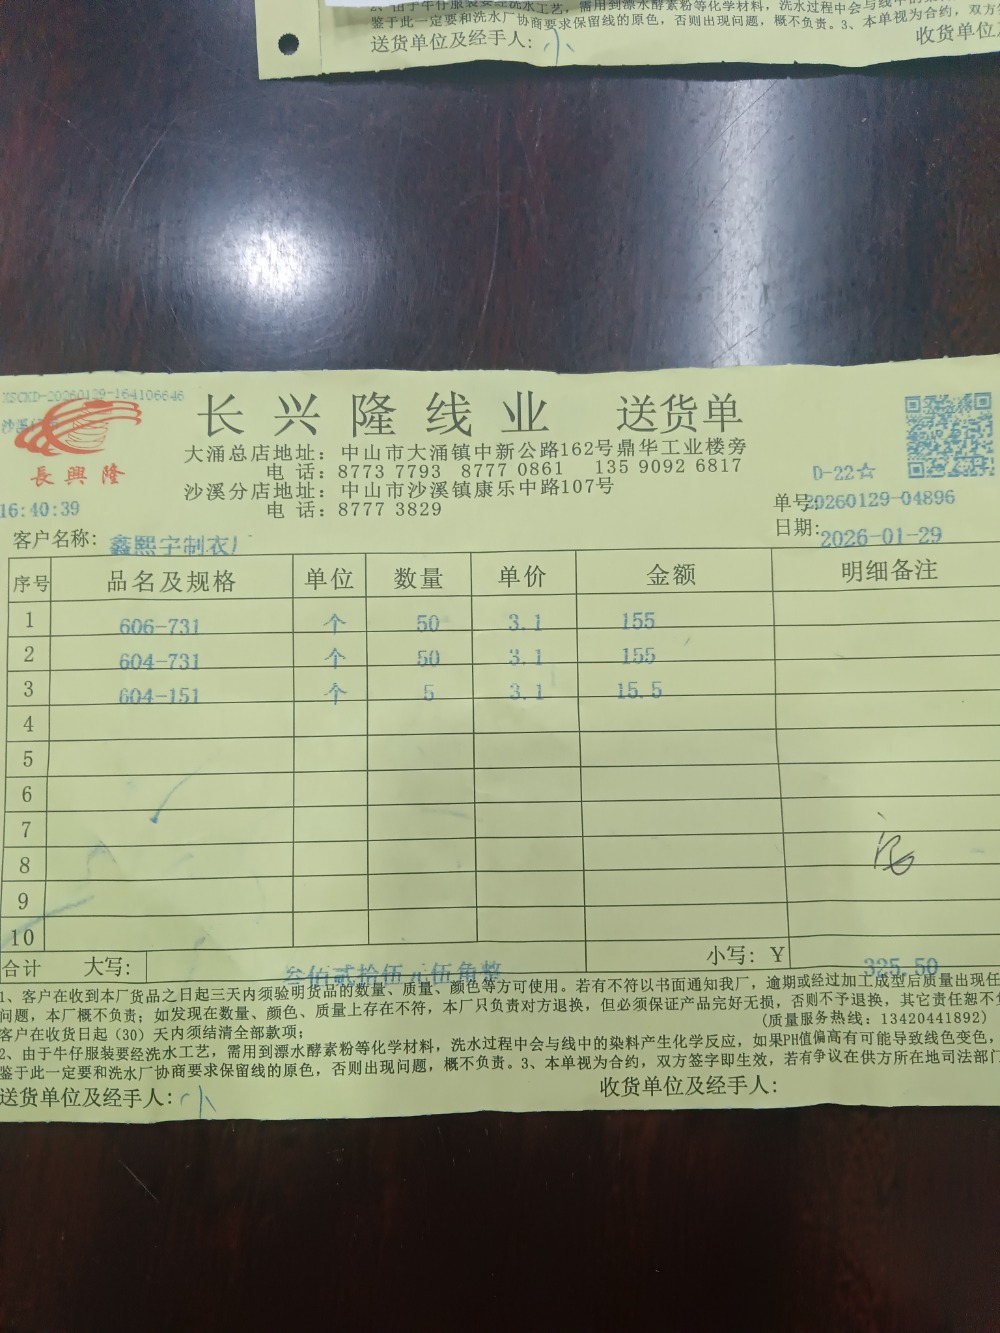 2、由于牛仔服装要经洗水工艺，需用到漂水酵素粉等化学材料，洗水过程中会与线中的
鉴于此一定要和洗水厂协商要求保留线的原色，否则出现问题，概不负责。3、本单视为合约，双方
送货单位及经手人：小
收货单位及
XSCKD-20260129-164106646
沙溪
長興隆
16:40:39
长兴隆线业 送货单
大涌总店地址：中山市大涌镇中新公路162号鼎华工业楼旁
电话：8773 7793 8777 0861 135 9092 6817
沙溪分店地址：中山市沙溪镇康乐中路107号
电话：8777 3829
D-22☆
单号:20260129-04896
日期:2026-01-29
客户名称：鑫熙宇制衣厂
序号 品名及规格 单位 数量 单价 金额 明细备注
1 606-731 个 50 3.1 155
2 604-731 个 50 3.1 155
3 604-151 个 5 3.1 15.5
4
5
6
7
8
9
10
合计 大写：叁佰贰拾伍元伍角整 小写：￥ 325.50
1、客户在收到本厂货品之日起三天内须验明货品的数量、质量、颜色等方可使用。若有不符以书面通知我厂，逾期或经过加工成型后质量出现任
问题，本厂概不负责；如发现在数量、颜色、质量上存在不符，本厂只负责对方退换，但必须保证产品完好无损，否则不予退换，其它责任恕不负
客户在收货日起（30）天内须结清全部款项；
(质量服务热线：13420441892)
2、由于牛仔服装要经洗水工艺，需用到漂水酵素粉等化学材料，洗水过程中会与线中的染料产生化学反应，如果PH值偏高有可能导致线色变色，
鉴于此一定要和洗水厂协商要求保留线的原色，否则出现问题，概不负责。3、本单视为合约，双方签字即生效，若有争议在供方所在地司法部门
送货单位及经手人：小
收货单位及经手人：